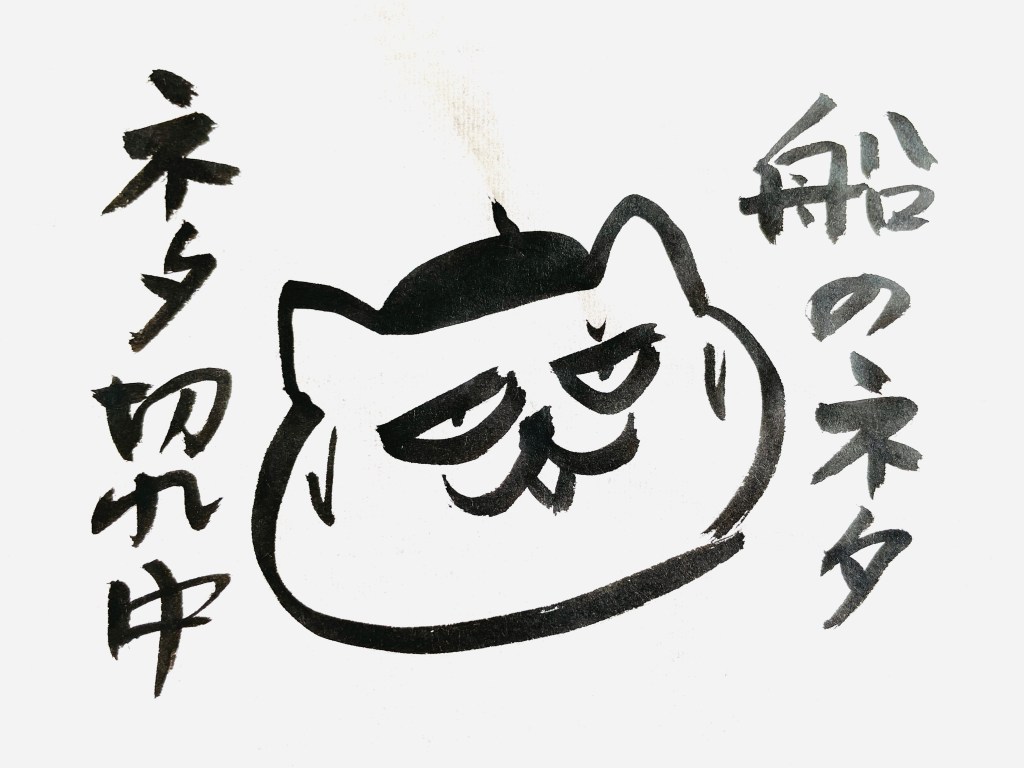 船のネタ
ネタ切れ中